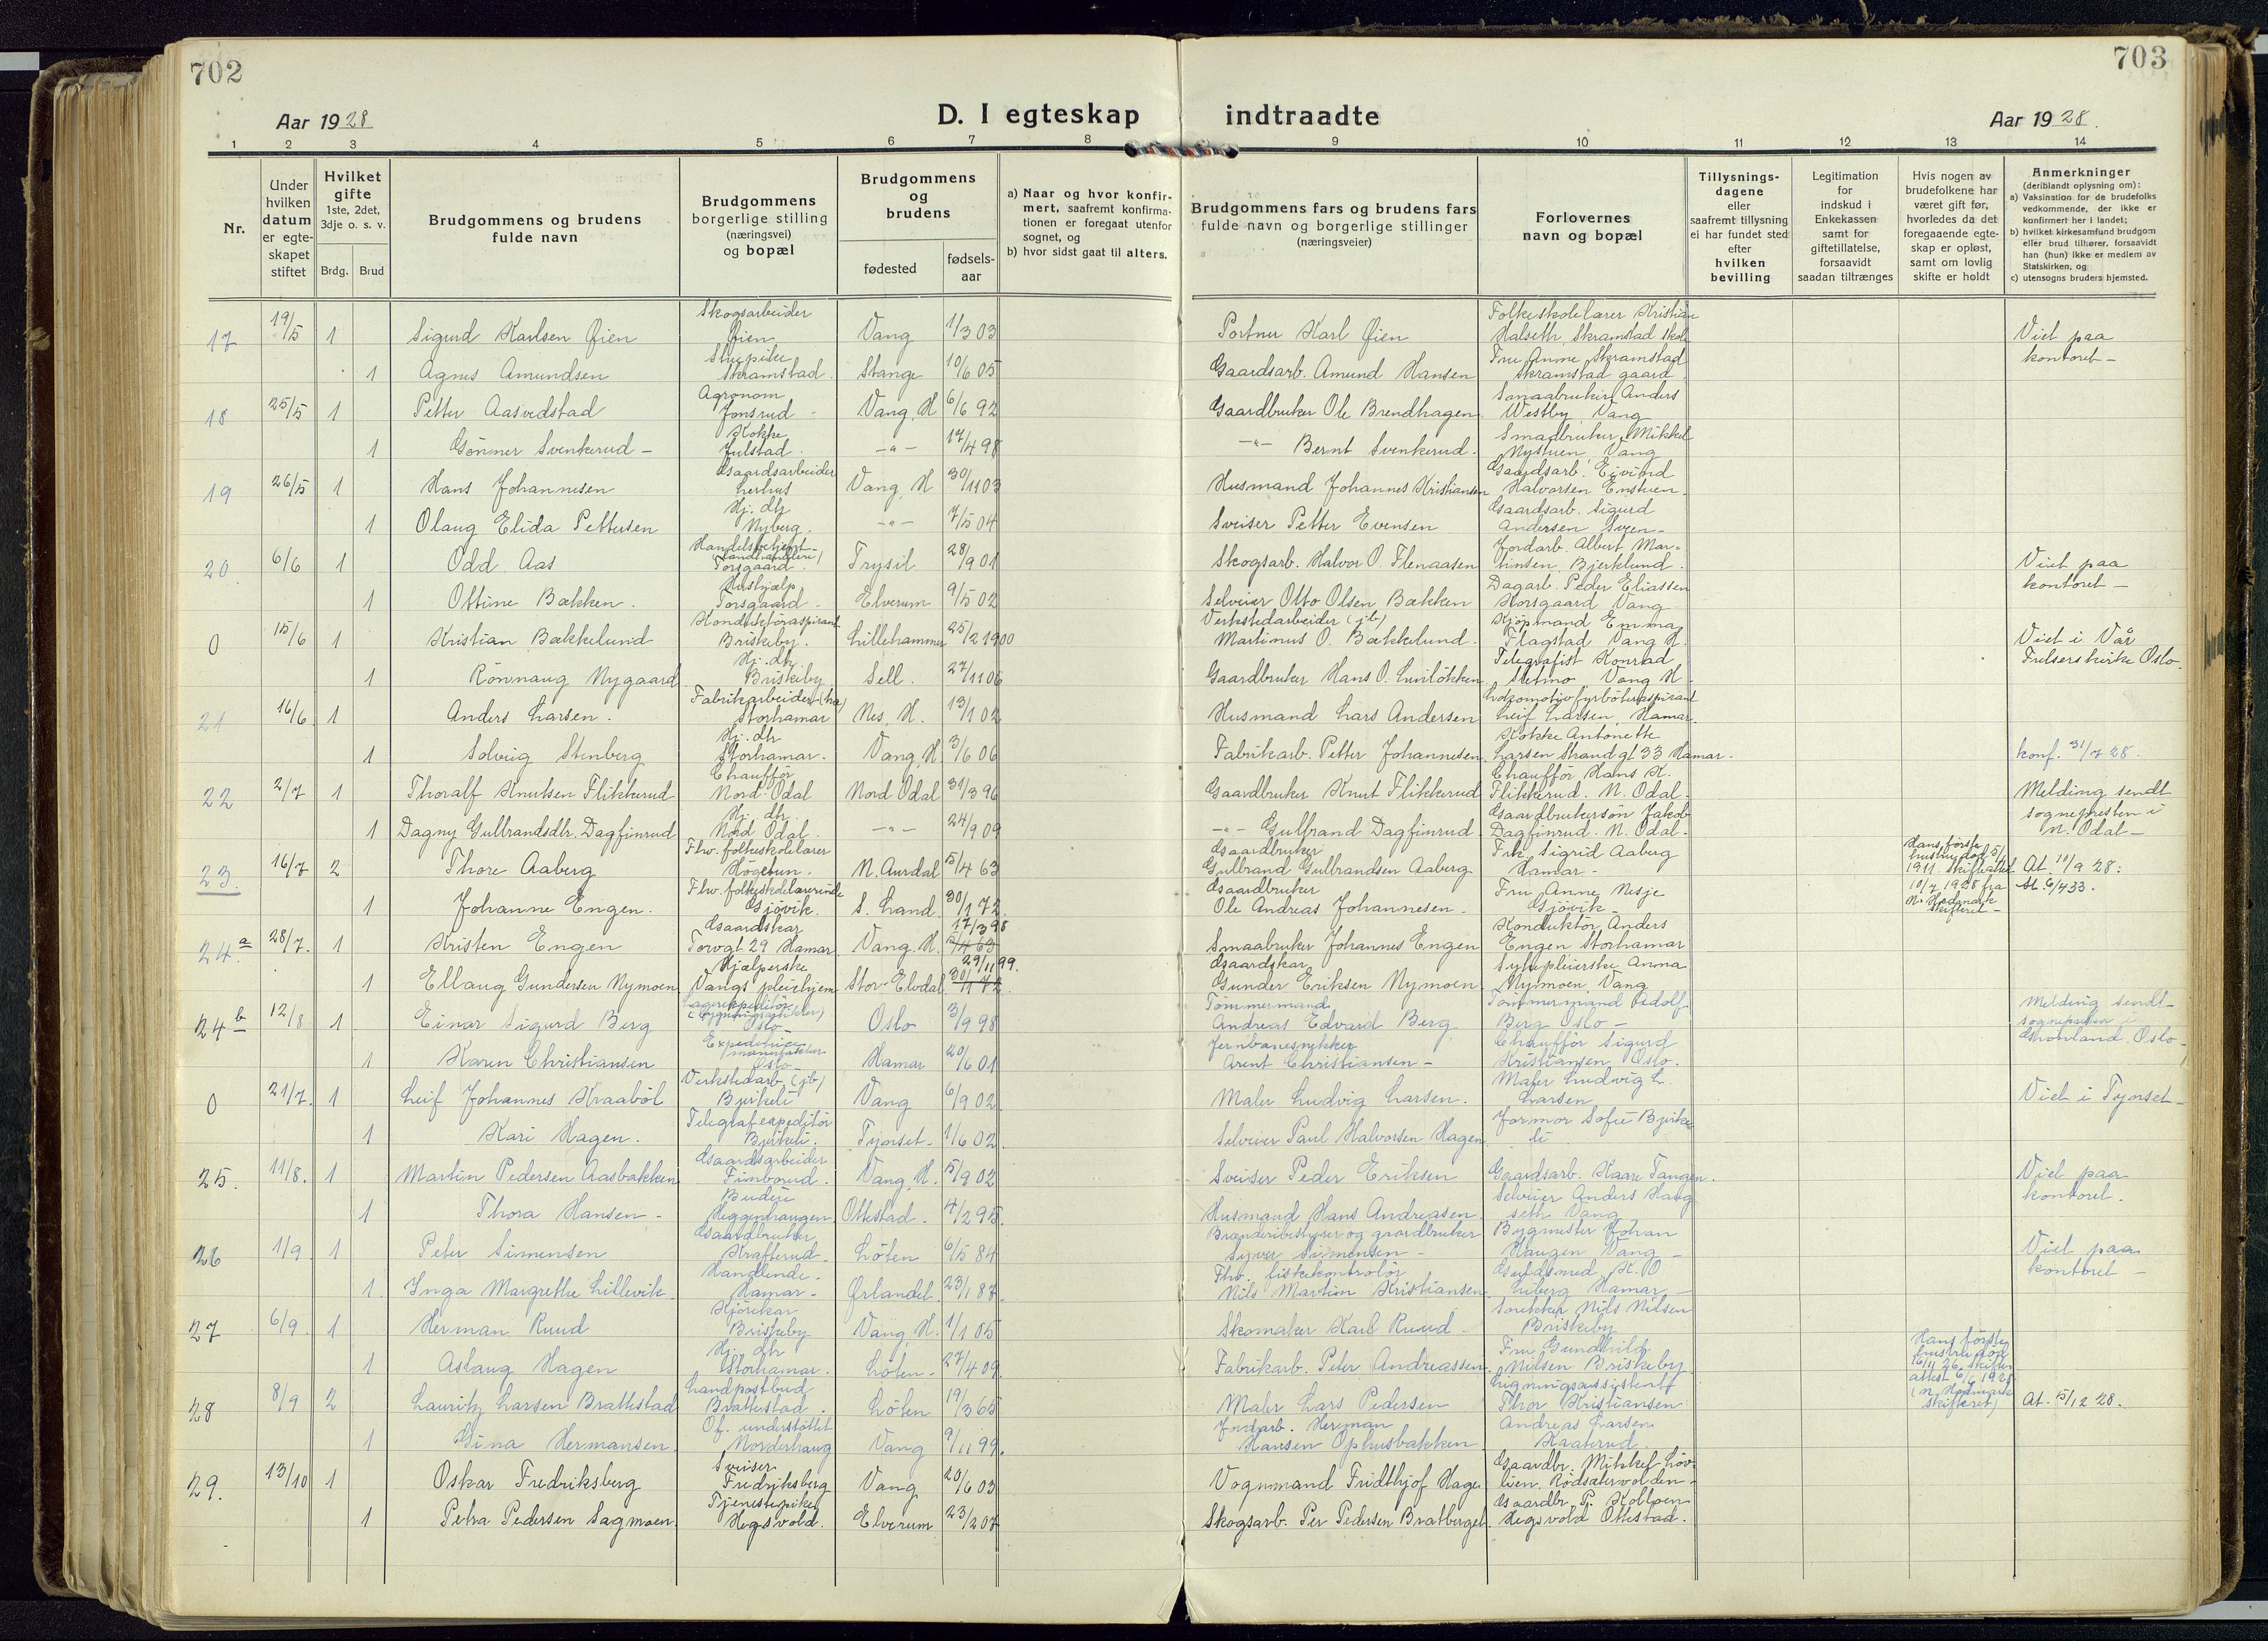 702
703
Aar 1928
D. I egteskap indtraadte
Aar 1928.
1 2 3 4 5 6 7 8 9 10 11 12 13 14
Nr.
Under hvilken datum er egteskapet stiftet
Hvilket gifte 1ste, 2det, 3dje o. s. v.
Brdg. Brud
Brudgommens og brudens fulde navn
Brudgommens borgerlige stilling (næringsvei) og bopæl
Brudgommens og brudens
fødested
fødsels-aar
a) Naar og hvor konfirmert, saafremt konfirmationen er foregaat utenfor sognet, og
b) hvor sidst gaat til alters.
Brudgommens fars og brudens fars fulde navn og borgerlige stillinger (næringsveier)
Forlovernes navn og bopæl
Tillysningsdagene eller saafremt tillysning ei har fundet sted efter hvilken bevilling
Legitimation for indskud i Enkekassen samt for giftetillatelse, forsaavidt saadan tiltrænges
Hvis nogen av brudefolkene har været gift før, hvorledes da det foregaaende egteskap er opløst, samt om lovlig skifte er holdt
Anmerkninger (deriblandt oplysning om):
a) Vaksination for de brudefolks vedkommende, der ikke er konfirmert her i landet;
b) hvilket kirkesamfund brudgom eller brud tilhører, forsaavidt han (hun) ikke er medlem av Statskirken, og
c) utensogns bruders hjemsted.
17 19/5 1 Sigurd Karlsen Øien Skogsarbeider Øien Vang 1/3 03 Portner Karl Øien Folkeskolelærer Kristian Halseth, Skramstad skole Viet paa kontoret -
1 Agnes Amundsen Skramstad. Stange 10/6 05 Gaardsarb. Amund Hansen Fru Anne Skramstad Skramstad gaard
18 25/5 1 Petter Aasvidstad Agronom Jonsrud - Vang, H 6/6 92 Gaardbruker Ole Brendhagen Smaabruker Anders Westby Vang
1 Gønner Svenkerud - Kokke Julstad. -"- 17/4 98 -"- Bernt Svenkerud. Smaabruker Mikkel Nystuen, Vang
19 26/5 1 Hans Johannesen Gaardsarbeider Lerhus Vang, H 30/11 03 Husmand Johannes Kristiansen Gaardsarb. Eivind Halvorsen Enstuen.
1 Olaug Elida Pettersen Hj. dtr Nyberg. -"- 7/5 04 Sveiser Petter Evensen Gaardsarb. Sigurd Andersen Sveen-
20 6/6 1 Odd Aas Handelsbetjent (landhandleri) Torsgaard. Trysil 28/9 01 Skogsarb. Halvor O. Flenaasen Jordarb. Albert Martinsen, Bjerklund. Viet paa kontoret -
1 Ottine Bækken. Hushjælp Torsgaard - Elverum 9/5 02 Selveier Otto Olsen Bækken Dagarb. Peder Eliassen Korsgaard Vang
0 15/6 1 Kristian Bækkelund Konduktøraspirant Briskeby. Lillehammer 25/2 1900 Verkstedarbeider (jb) Martinus O. Bækkelund. Kjøpmand Emma Flagstad Vang H. Viet i Vår Frelsers kirke Oslo.
1 Rønnaug Nygaard Hj. dtr. Briskeby Sell. 27/11 06 Gaardbruker Hans O. Telegrafist Konrad Vang H -
21 16/6 1 Anders Larsen. Fabrikarbeider Storhamar Nes, H. 13/1 02 Husmand Lars Andersen Lokomotivfyrbøteraspirant Leif Larsen, Hamar.
1 Solveig Stenberg Hj. dtr Storhamar. Vang, H 3/6 06 Fabrikarb. Petter Johannesen. Kokke Antonette Larsen Strandgt 33 Hamar. konf. 31/7 28.
22 2/7 1 Thoralf Knutsen Flikkerud Chauffør Nord-Odal Nord Odal 31/3 96 Gaardbruker Knut Flikkerud Chauffør Hans K. Flikkerud. N. Odal- Melding sendt sognepresten i N. Odal -
1 Dagny Gulbrandsdtr. Dagfinrud Hj. dtr. Nord Odal. -"- 24/9 09 -"- Gulbrand Dagfinrud Gaardbrukersøn Jakob Dagfinrud. N. Odal-
23. 16/7 2 Thore Aaberg Fhv. folkeskolelærer Høgetun. N. Aurdal 15/4 63 Gaardbruker Gulbrand Gulbrandsen Aaberg Frk. Sigrid Aaberg Hamar - Hans første hustru død 1911. skifteattest 10/7 1928 fra N. Hedmark skifteret - At. 10/9 28:
1 Johanne Engen. Fhv. folkeskolelærerinde Gjøvik. S. Land. 30/1 72. Gaardbruker Ole Andreas Johannesen - Fru Anne Nesje Gjøvik -
24 a 28/7. 1 Kristen Engen Gaardskar Torvgt. 29 Hamar Vang, H. 17/3 98 15/4 63 Smaabruker Johannes Engen Konduktør Anders Engen Storhamar
1 Ellaug Gundersen Nymoen Hjælperske Vangs pleiehjem Stor-Elvdal 29/11 99. 30/1 72. Gaardskar Gunder Eriksen Nymoen Sykepleierske Anna Nymoen, Vang
24 b 12/8 1 Einar Sigurd Berg Lagerexpeditør (bygningsartikler) Oslo - Oslo 3/9 98 Tømmermand Andreas Edvard Berg Tømmermand Adolf Berg Oslo - Melding sendt sognepresten i Grønland, Oslo-
1 Karen Christiansen Expeditrice Oslo - Hamar 20/6 01 Jernbanesnekker Arent Christiansen - Chauffør Sigurd Kristiansen, Oslo.
0 21/7. 1 Leif Johannes Kraabøl Verkstedarb. (jb) Bjerkeli Vang 6/9 02 Maler Ludvig Larsen. Maler Ludvig L. Larsen Viet i Tynset -
1 Kari Hagen. Telegrafexpeditør Bjerkeli. Tynset - 1/6 02. Selveier Paul Halvorsen Hagen Formor Sofie Bjerkeli
25. 11/8. 1 Martin Pedersen Aasbakken Gaardsarbeider Finborud. Vang, H. 5/9 02 Sveiser Peder Eriksen Gaardsarb. Kaare Tangen. Viet paa kontoret.
1 Thora Hansen - Budeie Heggenhaugen Ottestad. 4/2 95. Husmand Hans Andreasen Selveier Anders Haugseth Vang
26 1/9. 1 Peter Simensen Gaardbruker Krafterud. Løten 6/5 84 Brænderibestyrer og gaardbruker Syver Simensen - Bygmester Johan Haugen Vang - Viet paa kontoret -
1. Inga Margrethe Lillevik. Handlende. Hamar - Ørlandet 23/1 87. Fhv. fiskekontrolør Nils Martin Kristiansen Guldsmed K. O Liberg Hamar -
27 6/9. 1 Herman Ruud Kjørekar Briskeby Vang, H. 1/1 05 Skomaker Karl Ruud. Snekker Nils Nilsen Briskeby
1 Aslaug Hagen Hj. dtr Storhamar. Løten - 27/4 09. Fabrikarb. Peter Andreassen Fru Gundhild Nilsen Briskeby
28 8/9 2 Lauritz Larsen Brattestad Landpostbud Brattestad. Løten 19/3 65 Maler Lars Pedersen Ligningsassistent Thor Kristiansen Hans første hustru død 16/11 26. skifteattest 6/ 1928 (N. Hedmark skifteret) At. 5/12 28.
1 Gina Hermansen. Of. understøttet Norderhaug Vang 9/11 99. Jordarb. Herman Hansen Ophusbakken Andreas Larsen Kaaterud.
29. 13/10 1 Oskar Fredriksberg Sveiser Fredriksberg Vang 20/6 03 Vognmand Fridthjof Hage Gaardbr. Mikkel Løvlien, Rødsætervolden.
1 Petra Pedersen Sagmoen. Tjenestepike Hegsvold. Elverum 23/2 07 Skogsarb. Per Pedersen Bratberget. Gaardbr. P. Kolloen Hegsvold Ottestad.